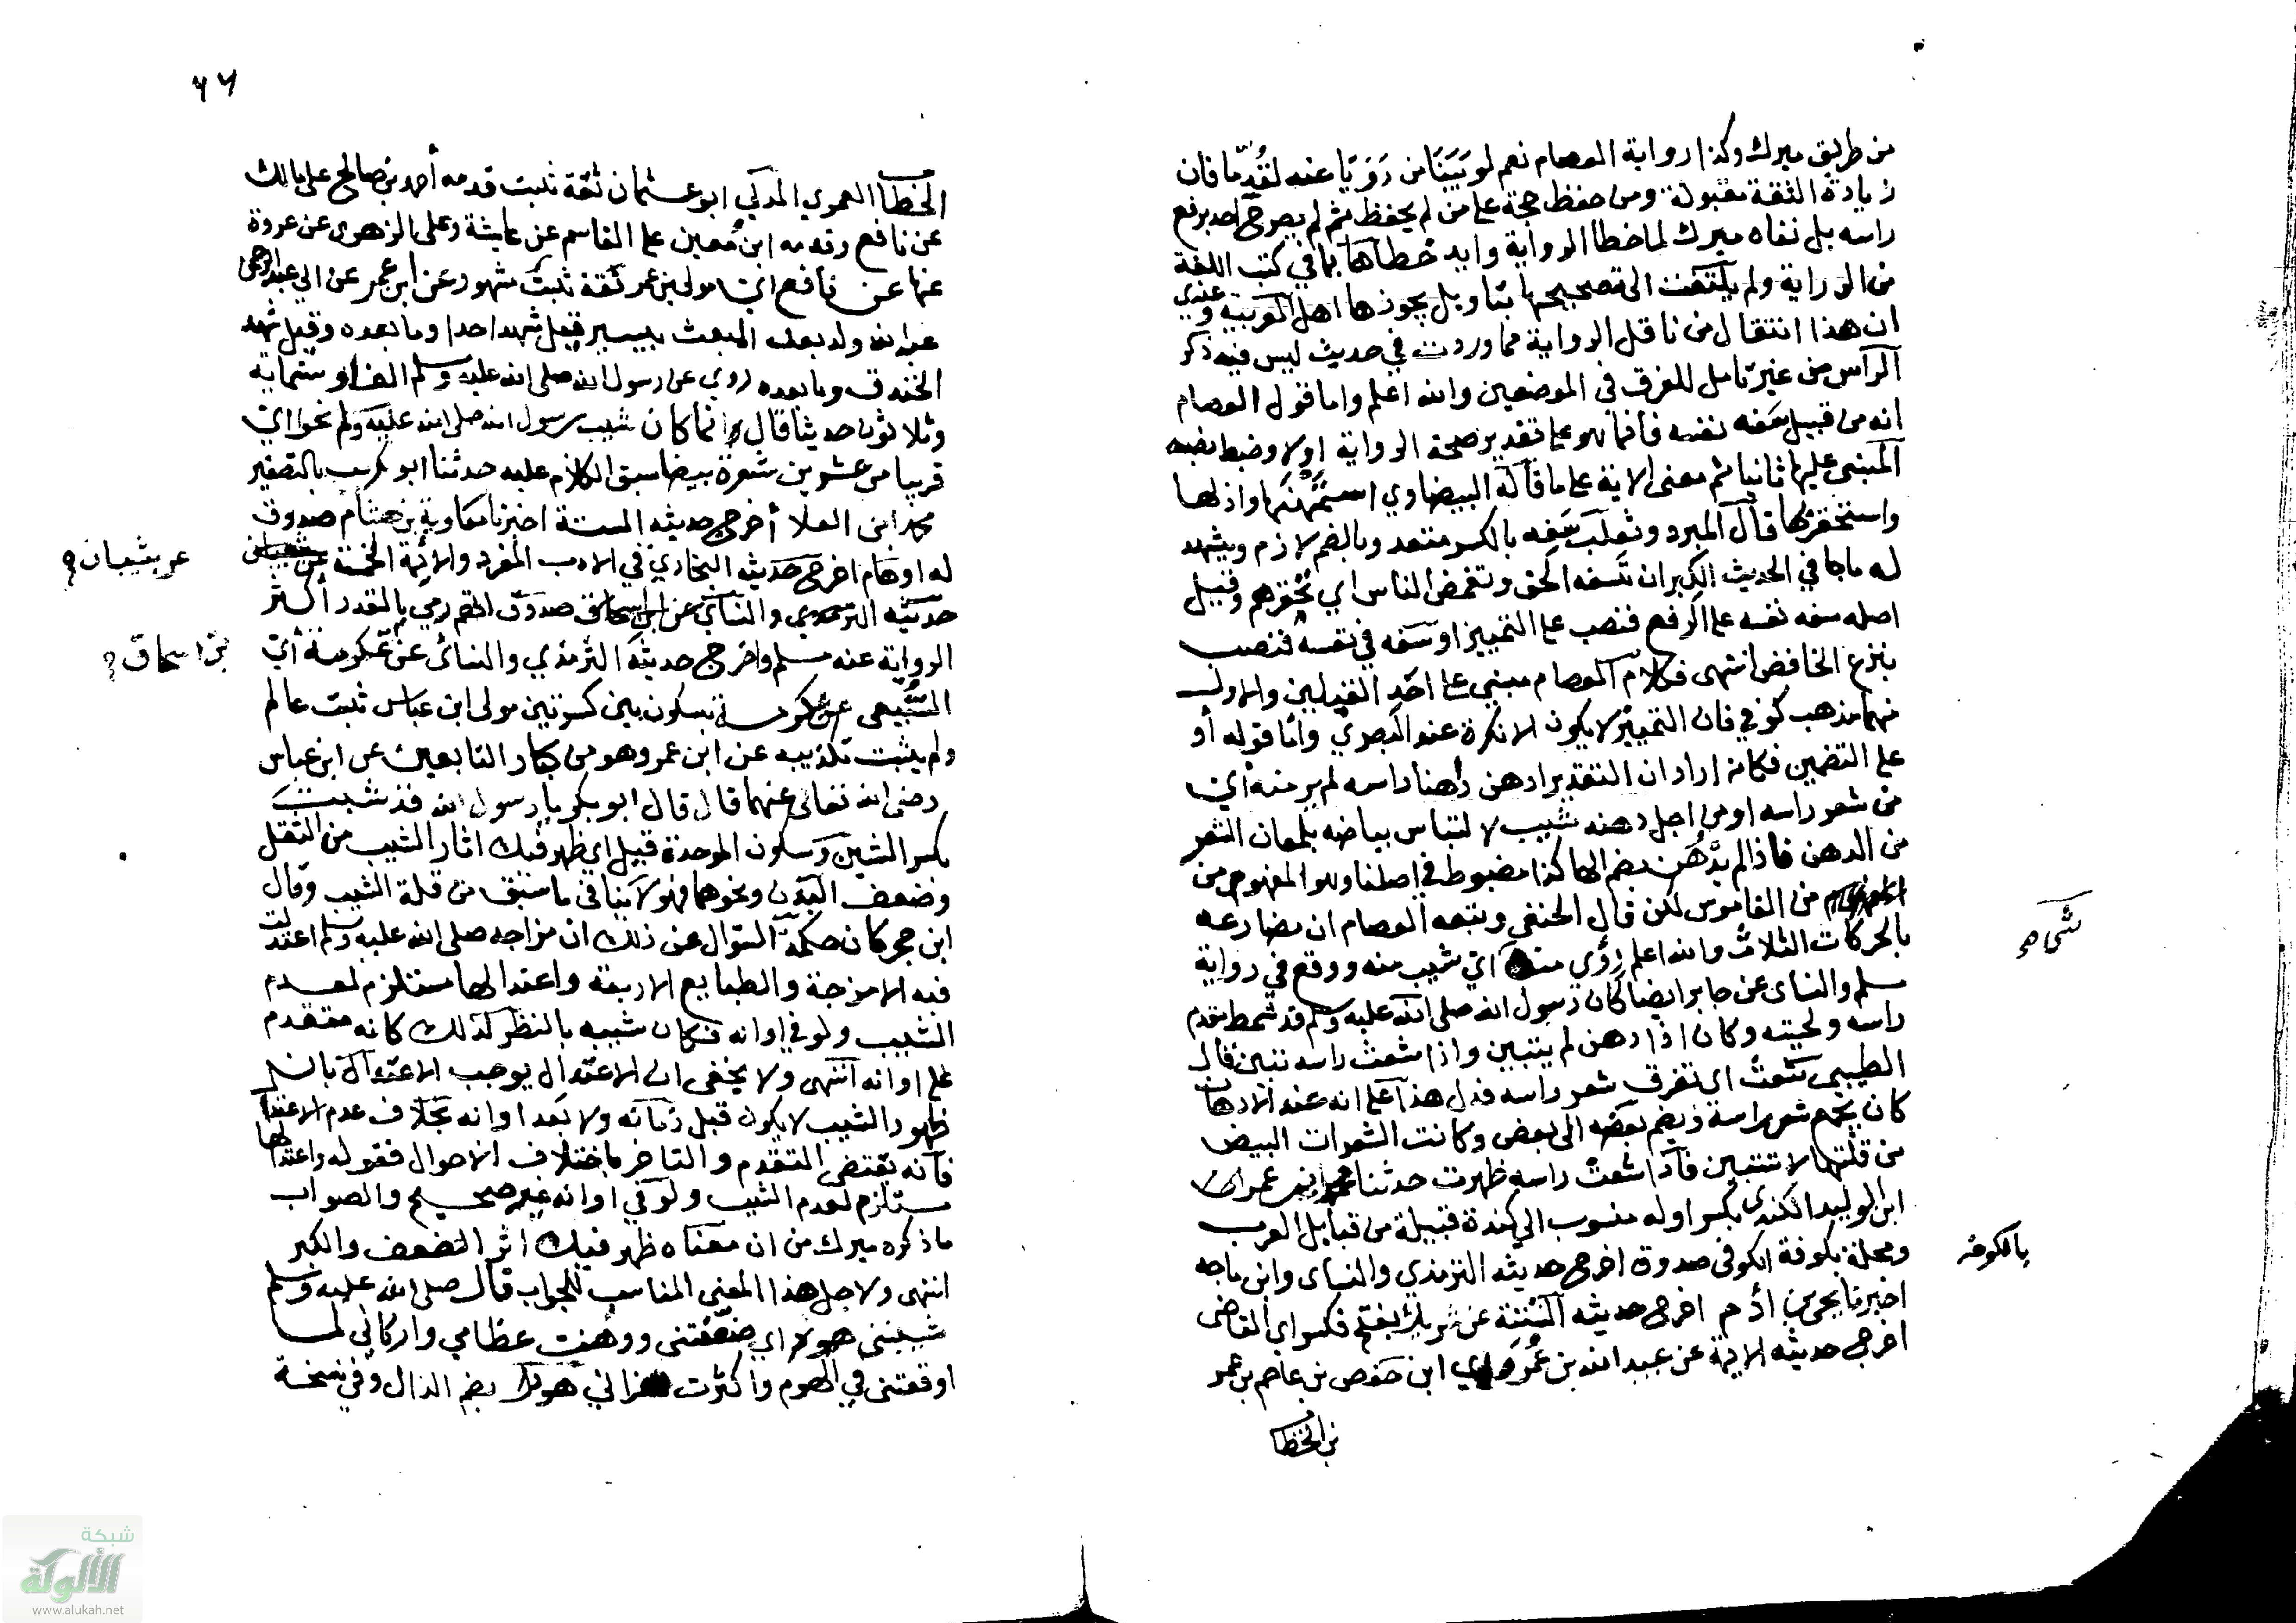 من طريق ميرك وكذا رواية العصام نعم لو بَيَّنَا من رَوَيَا عنه لقُدِّما فان
زيادة الثقة مقبولة ومن حفظ حجة على من لم يحفظ ثم لم يصرح احد برفع
راسه بل نفاه ميرك لما خطا الرواية وايد خطاها بما في كتب اللغة
من الدراية ولم يلتفت الى تصحيحها بتاويل يجوزها اهل العربية وعندي
ان هذا انتقال من ناقل الرواية مما وردت في حديث ليس فيه ذكر
الراس من غير تامل للفرق في الموضعين والله اعلم واما قول العصام
انه من قبيل سفه نفسه فانما هو على تقدير صحة الرواية اولا وضبط نصبه
المبني عليها ثانيا ثم معنى الاية على ما قاله البيضاوي استمهنها واذلها
واستخفّ بها قال المبرد وثعلب سَفِه بالكسر متعد وبالضم لازم ويشهد
له ما جا في الحديث الكبر ان تسفه الحق وتغمض الناس اي تحقرهم وقيل
اصله سفه نفسه على الرفع فنصب على التمييز او سفه في نفسه فنصب
بنزع الخافض انتهى فكلام العصام مبني على احد القيلين والاول
منهما مذهب كوفي فان التمييز لا يكون الا نكرة عند البصري واما قوله أو
على التضمين فكانه اراد ان التقدير ادهن داهنا راسه لم ير منه أي
من شعر راسه او من اجل دهنه شيب لالتباس بياضه بلمعان الشعر
من الدهن فاذا لم يدهُن بضم الها كذا مضبوط في اصلنا وهو المفهوم من
من القاموس لكن قال الحنفي وتبعه العصام ان مضارعه
بالحركات الثلاث والله اعلم رؤي منه اي شيب منه ووقع في رواية
مسلم والنساى عن جابر ايضا كان رسول الله صلى الله عليه وسلم قد شمط مقدم
راسه ولحيته وكان اذا دهن لم يتبين واذا شعث راسه تبين قال
الطيبي شعث اى تفرق شعر راسه فدل هذا على انه عند الادهان
كان يجمع شعر راسه ويضم بعضه الى بعض وكانت الشعرات البيض
من قلتها لا تتبين فاذا شعث راسه ظهرت حدثنا محمد بن عمر
ابن الوليد الكندي بكسر اوله منسوب الى كندة قبيلة من قبايل العرب
ومحلة بكوفة الكوفي صدوق اخرج حديثه الترمذي والنساى وابن ماجه
اخبرنا يحي بن أدم اخرج حديثه الستة عن شريك بفتح فكسر اي القاضي
اخرج حديثه الايمة عن عبيد الله بن عُمَر اي ابن حفص بن عاصم بن عمر
بن الخطا
شماه
بالكوفه
٦٦
الخطاب العمري المدني ابو عثمان ثقة ثبت قدمه أحمد بن صالح على مالك
عن نافع وقدمه ابن معين على القاسم عن عايشة وعلى الزهري عن عروة
عنها عن نافع اي مولى بن عمر ثقة ثبت مشهور عن ابن عمر عن ابي عبد الرحمن
عبد الله ولد بعد المبعث بيسير قيل شهد احدا وما بعده وقيل شهد
الخندق وما بعده روي عن رسول الله صلى الله عليه وسلم الف او ستماية
وثلاثون حديثا قال انما كان شيب رسول الله صلى الله عليه ولم نحوا اي
قريبا من عشرين شعرة بيضا سبق الكلام عليه حدثنا ابو كريب بالتصغير
محمد ابن العلا أخرج حديثه الستة اخبرنا معاوية بن هشام صدوق
له اوهام اخرج حديثه البخاري في الادب المفرد والايمة الخمسة عن شيبان
حديثه الترمذي والنسآي عن ابي اسحاق صدوق رمي بالقدر أكثر
الرواية عنه مسلم واخرج حديثه الترمذي والنسائ عن عكرمة أي
السَّبيعي عن عكرمة بسكون بين كسرتين مولى ابن عباس ثبت عالم
ولم يثبت تكذيبه عن ابن عمر وهو من كبار التابعين عن ابن عباس
رضى الله تعالى عنهما قال قال ابو بكر يا رسول الله قد شبت
بكسر الشين وسكون الموحدة قيل اي ظهر فيك اثار الشيب من الثقل
وضعف البدن ونحوهما فهو لا ينافي ما سبق من قلة الشيب وقال
ابن حجر كان حكمة السؤال عن ذلك ان مزاجه صلى الله عليه وسلم اعتدلت
فيه الامزجة والطبايع الاربعة واعتدالها مستلزم لعدم
الشيب ولو في اوانه فكان شيبه بالنظر لذلك كانه متقدم
على اوانه انتهى ولا يخفى ان الاعتدال يوجب الاعتدال بان
ظهور الشيب لا يكون قبل زمانه ولا بعد اوانه بخلاف عدم الاعتدال
فانه يقتضى التقدم والتاخر باختلاف الاحوال فقوله واعتدالها
مستلزم لعدم الشيب ولو في اوانه غير صحيح والصواب
ما ذكره ميرك من ان معناه ظهر فيك اثر الضعف والكبر
انتهى ولاجل هذا المعنى المناسب للجواب قال صلى الله عليه وسلم
شيبتني هود اي ضعّفتني ووهنت عظامي واركاني لما
اوقعتني في الهموم واكثرت احزاني هود بضم الدال وفي نسخة
عن شيبان؟
بن اسحاق؟
شبكة
الألوكة
www.alukah.net